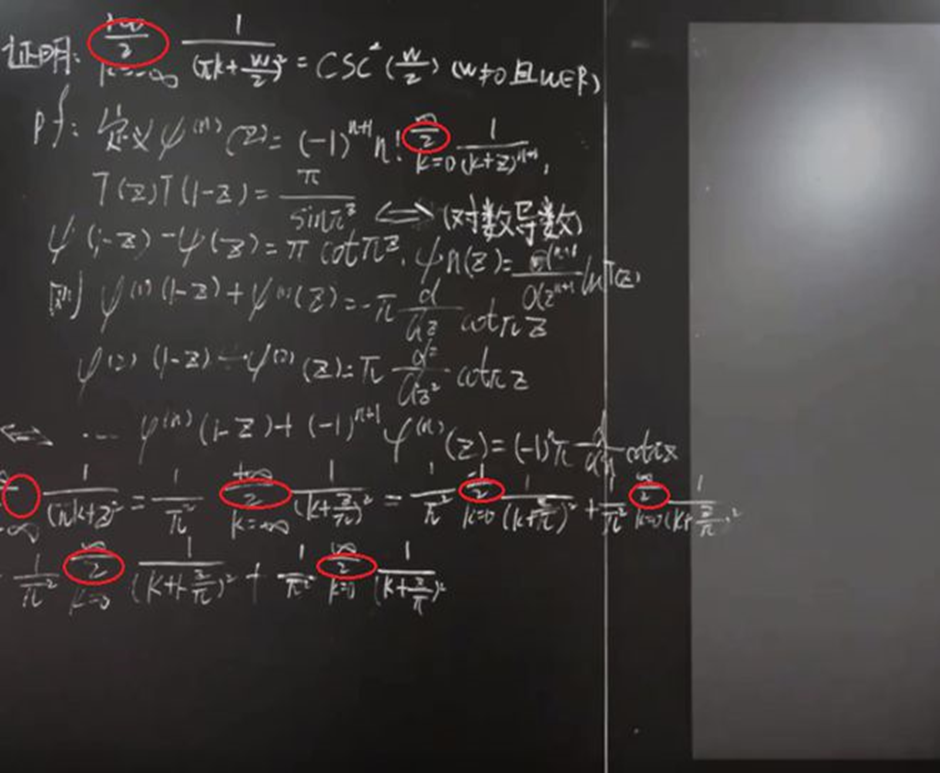 证明: \frac{+\infty}{2} k=-\infty \frac{1}{(\pi k+\frac{w}{2})^2} = CSC^2(\frac{w}{2}) (w≠0且w∈R)
pf: 定义 ψ^{(n)}(z)=(-1)^{n+1} n! \frac{\infty}{2} k=0 \frac{1}{(k+z)^{n+1}},
Γ(z)Γ(1-z)=\frac{π}{sinπz} ⟺ (对数导数)
ψ(1-z)-ψ(z)=π cotπz, ψn(z)=\frac{d^{n+1}}{dz^{n+1}} lnΓ(z)
则 ψ^{(1)}(1-z)+ψ^{(1)}(z)=-π\frac{d}{dz} cotπz
ψ^{(2)}(1-z)-ψ^{(2)}(z)=π\frac{d^2}{dz^2} cotπz
⟺ ... ψ^{(n)}(1-z)+(-1)^{n+1}ψ^{(n)}(z)=(-1)^n π\frac{d^n}{dz^n} cotπz
\frac{1}{(πk+z)^2} = \frac{1}{π^2} \frac{+\infty}{2} k=-\infty \frac{1}{(k+\frac{z}{π})^2} = \frac{1}{π^2} \frac{-1}{2} k=0 \frac{1}{(k+\frac{z}{π})^2} + \frac{1}{π^2} \frac{\infty}{2} k=0 \frac{1}{(k+\frac{z}{π})^2}
\frac{1}{π^2} \frac{\infty}{2} k=0 \frac{1}{(k+1-\frac{z}{π})^2} + \frac{1}{π^2} \frac{\infty}{2} k=0 \frac{1}{(k+\frac{z}{π})^2}